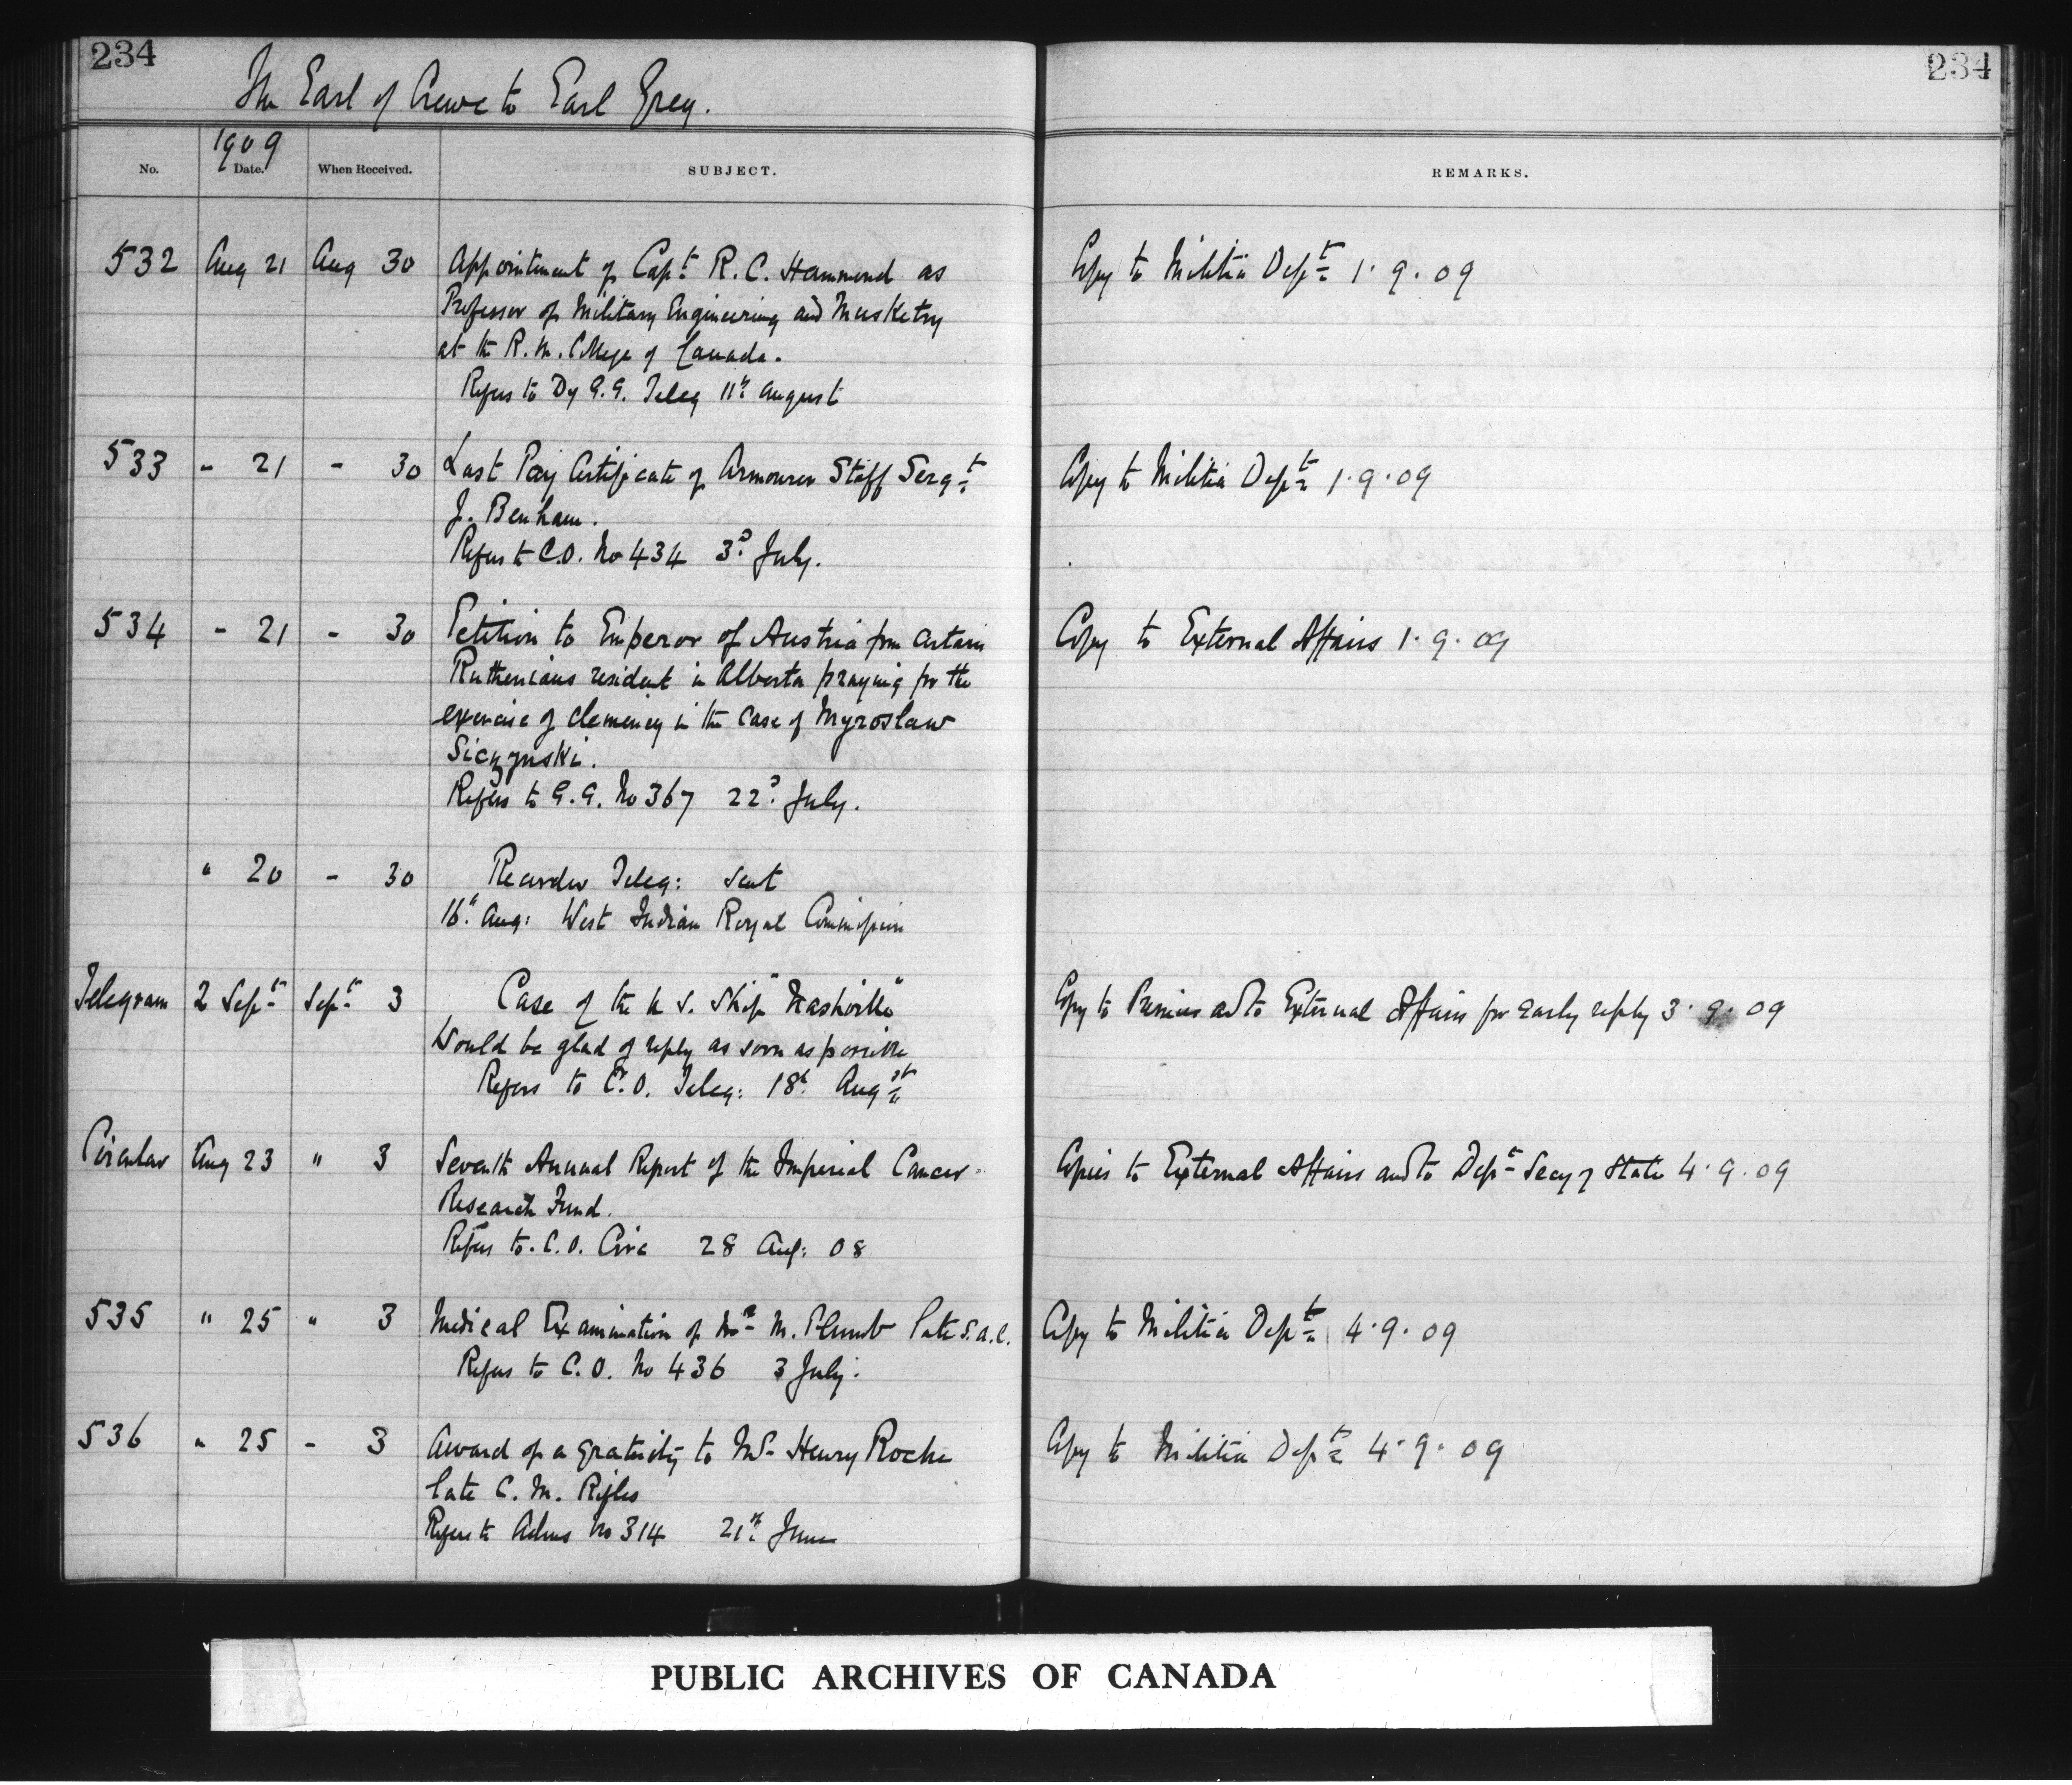 234
234
The Earl of Crewe to Earl Grey.
1909
No. Date. When Received. SUBJECT. REMARKS.
532 Aug 21 Aug 30 Appointment of Capt. R. C. Hammond as Copy to Militia Dept 1.9.09
Professor of Military Engineering and Musketry
at the R. M. College of Canada.
Refers to Dy G.G. Teleg 11th August
533 - 21 - 30 Last Pay Certificate of Armourer Staff Sergt Copy to Militia Dept 1.9.09
J. Benham.
Refers to C.O. No 434 3d July.
534 - 21 - 30 Petition to Emperor of Austria from certain Copy to External Affairs 1.9.09
Ruthenians resident in Alberta praying for the
exercise of clemency in the case of Myroslaw
Siczynski.
Refers to G.G. No 367 22d July.
" 20 - 30 Recorder Teleg: sent
16th Aug: West Indian Royal Commission
Telegram 2 Sept Sept 3 Case of the U S. Ship "Nashville" Copy to Premier and to External Affairs for early reply 3.9.09
Would be glad of reply as soon as possible
Refers to C.O. Teleg: 18th Augst
Circular Aug 23 " 3 Seventh Annual Report of the Imperial Cancer Copies to External Affairs and to Dept Secy of State 4.9.09
Research Fund.
Refers to C.O. Circ 28 Aug: 08
535 " 25 " 3 Medical Examination of Mr M. Plumb late S.A.C. Copy to Militia Dept 4.9.09
Refers to C.O. No 436 3 July.
536 " 25 - 3 Award of a gratuity to Mr Henry Roche Copy to Militia Dept 4.9.09
late C. M. Rifles
Refers to Adms No 314 21st June
PUBLIC ARCHIVES OF CANADA